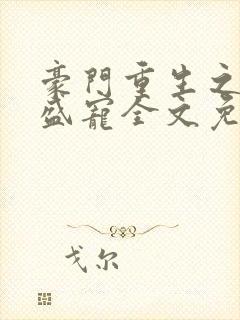 豪門重生之
盛寵全文免
戈尔